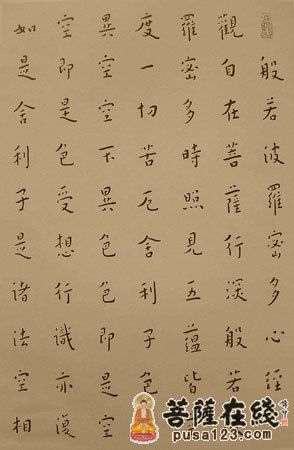 般若波羅密多心經
觀自在菩薩行深般若
羅密多時照見五蘊皆
度一切苦厄舍利子色
異空空不異色色即是空
空即是色受想行識亦復
如是舍利子是諸法空相
菩薩在线
pusa123.com